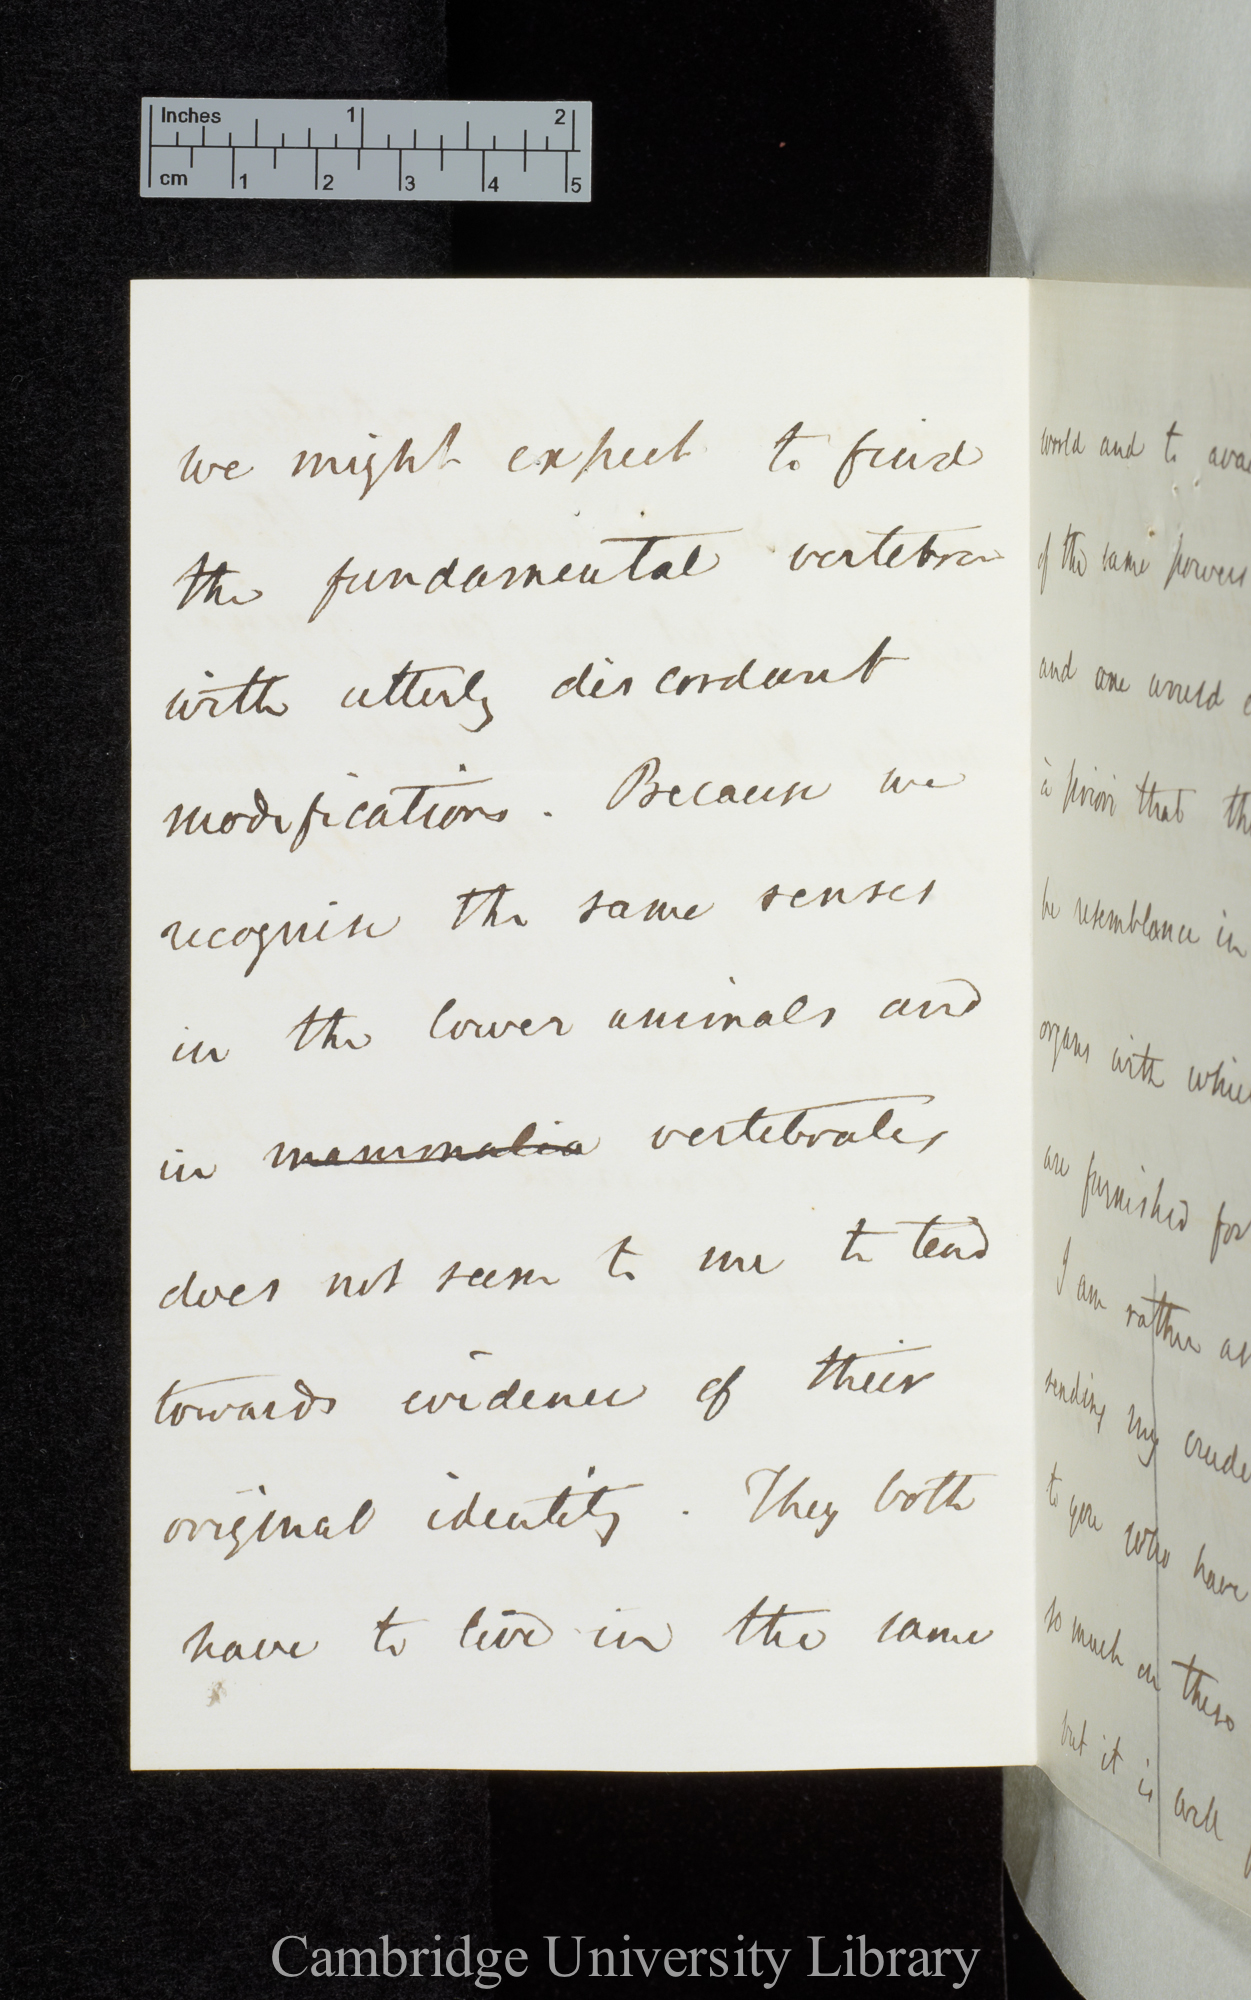 Inches 1 2
cm 1 2 3 4 5
we might expect to find
the fundamental vertebra
with utterly discordant
modifications. Because we
recognise the same senses
in the lower animals and
in mammalia vertebrates,
does not seem to me to tend
towards evidence of their
original identity. They both
have to live in the same
world and to
of the same powers
and one would
à priori that
be resemblance in
organs with
are furnished for
I am rather
sending my
to you who have
so much on these
but it is well
Cambridge University Library